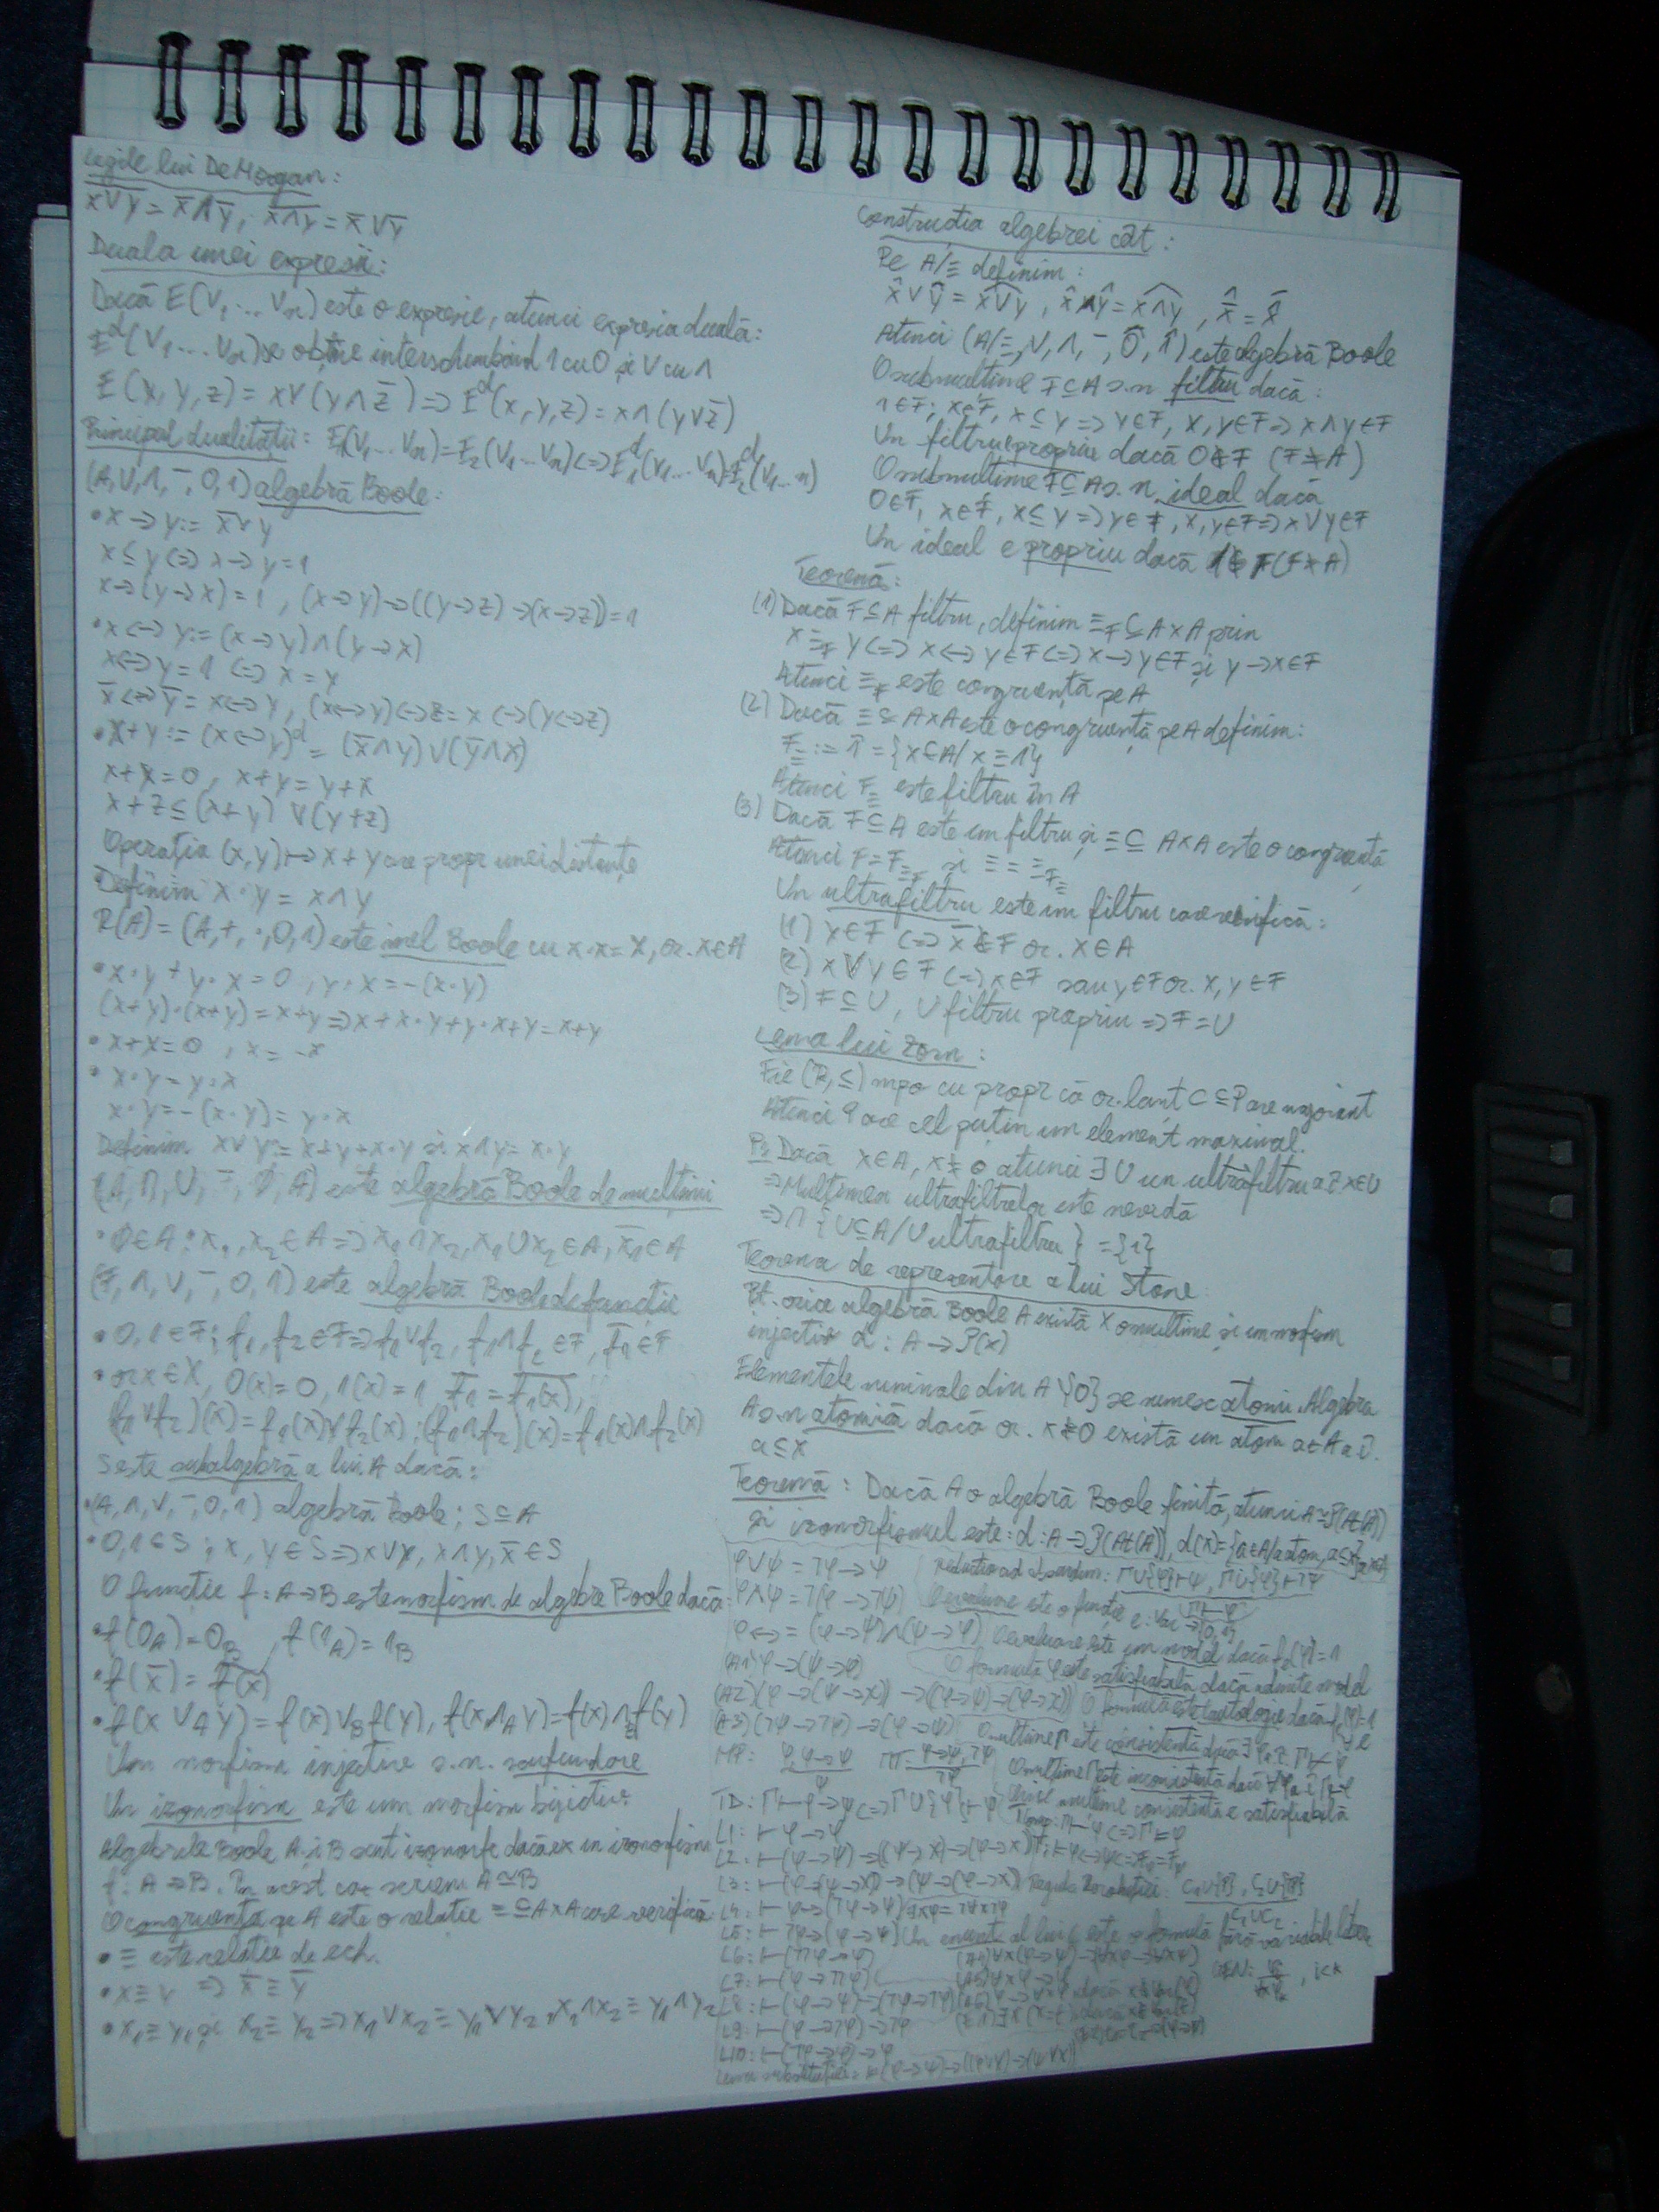 Legile lui DeMorgan:
x∨y = x̄∧ȳ, x∧y = x̄∨ȳ
Duala unei expresii:
Dacă E(V₁...Vₙ) este o expresie, atunci expresia duală:
Eᵈ(V₁...Vₙ) se obține interschimbând 1 cu 0 și ∨ cu ∧
E(x,y,z) = x∨(y∧z̄) => Eᵈ(x,y,z) = x∧(y∨z̄)
Principul dualității: E₁(V₁...Vₙ)=E₂(V₁...Vₙ)<=>E₁ᵈ(V₁...Vₙ)=E₂ᵈ(V₁...n)
(A,∨,∧,¯,0,1) algebră Boole:
• x→y:= x̄∨y
x≤y<=> x→y=1
x→(y→x)=1, (x→y)→((y→z)→(x→z))=1
• x<->y:=(x→y)∧(y→x)
x<->y=1 <=> x=y
x̄<->ȳ=x<->y, (x<->y)<->z=x<->(y<->z)
• x+y:=(x<->y)ᵈ=(x̄∧y)∨(ȳ∧x)
x+x=0, x+y=y+x
x+z≤(x+y)∨(y+z)
Operația (x,y)↦x+y are propr unei distanțe
Definim x·y = x∧y
R(A)=(A,+,·,0,1) este inel Boole cu x·x=x, or. x∈A
• x·y+y·x=0, y·x=-(x·y)
(x+y)·(x+y)=x+y=>x+x·y+y·x+y=x+y
• x+x=0, x=-x
• x·y=y·x
x·y=-(x·y)=y·x
Definim x∨y:=x+y+x·y și x∧y=x·y
(A,∩,∪,¯,∅,A) este algebră Boole de mulțimi
• ∅∈A; x₁,x₂∈A=>x₁∩x₂,x₁∪x₂∈A, x̄₁∈A
(F,∧,∨,¯,0,1) este algebră Boole de funcții
• 0,1∈F; f₁,f₂∈F=>f₁∨f₂, f₁∧f₂∈F, f̄₁∈F
• or x∈X, 0(x)=0, 1(x)=1, f̄₁=f₁(x),
(f₁∨f₂)(x)=f₁(x)∨f₂(x); (f₁∧f₂)(x)=f₁(x)∧f₂(x)
S este subalgebră a lui A dacă:
• (A,∧,∨,¯,0,1) algebră Boole; S⊆A
• 0,1∈S; x,y∈S=>x∨y, x∧y, x̄∈S
O funcție f:A→B este morfism de algebre Boole dacă:
• f(0_A)=0_B, f(1_A)=1_B
• f(x̄)=f(x)
• f(x∨_A y)=f(x)∨_B f(y), f(x∧_A y)=f(x)∧_B f(y)
Un morfism injectiv s.n. scufundare
Un izomorfism este un morfism bijectiv.
Algebrele Boole A și B sunt izomorfe dacă ex un izomorfism
f: A→B. În acest caz scriem A≃B
O congruența pe A este o relație ≡⊆A×A care verifică:
• ≡ este relație de ech.
• x≡y => x̄≡ȳ
• x₁≡y₁ și x₂≡y₂=>x₁∨x₂≡y₁∨y₂, x₁∧x₂≡y₁∧y₂
Construcția algebrei cât:
Pe A/≡ definim:
x̂∨ŷ=x∨y, x̂∧ŷ=x∧y,
Atunci (A/≡,∨,∧,¯,0̂,1̂) este algebră Boole
O submulțime F⊆A s.n filtru dacă:
1∈F; x∈F, x≤y=>y∈F, x,y∈F=>x∧y∈F
Un filtru e propriu dacă 0∉F (F≠A)
O submulțime F⊆A s.n. ideal dacă
0∈F, x∈F, x≤y=>y∈F, x,y∈F=>x∨y∈F
Un ideal e propriu dacă 1∉F(F≠A)
Teoremă:
(1) Dacă F⊆A filtru, definim ≡_F⊆A×A prin
x≡_F y<=>x<->y∈F<=>x→y∈F și y→x∈F
Atunci ≡_F este congruență pe A
(2) Dacă ≡⊆A×A este o congruență pe A definim:
F_≡:=1̂={x∈A/x≡1}
Atunci F_≡ este filtru în A
(3) Dacă F⊆A este un filtru și ≡⊆A×A este o congruență
Atunci F=F_≡_F și ≡=≡_F_≡
Un ultrafiltru este un filtru care verifică:
(1) x∈F<=>x̄∉F or. x∈A
(2) x∨y∈F<=>x∈F sau y∈F or. x,y∈F
(3) F⊆U, U filtru propriu=>F=U
Lema lui Zorn:
Fie (P,≤) mpo cu propr că or. lanț C⊆P are majorant
Atunci P are cel puțin un element maximal.
Dacă x∈A, x≠0 atunci ∃U un ultrafiltru a.î x∈U
=>Mulțimea ultrafiltrelor este nevidă
=>∩{U⊆A/U ultrafiltru}={1}
Teorema de reprezentare a lui Stone:
Pt. orice algebră Boole A există X o mulțime și un morfism
injectiv d:A→P(x)
Elementele minimale din A\{0} se numesc atomi. Algebra
A s.n atomică dacă or. x≠0 există un atom a∈A a.î.
a≤x
Teoremă: Dacă A o algebră Boole finită, atunci A≃P(At(A))
și izomorfismul este: d:A→P(At(A)), d(x)={a∈A/a atom, a≤x}
φ∨ψ=¬φ→ψ
φ∧ψ=¬(φ→¬ψ)
φ<->ψ=(φ→ψ)∧(ψ→φ)
(A1) φ→(ψ→φ)
(A2) (φ→(ψ→χ))→((φ→ψ)→(φ→χ))
(A3) (¬φ→¬ψ)→(ψ→φ)
MP: φ, φ→ψ
ψ
TD: Γ⊢φ→ψ<=>Γ∪{φ}⊢ψ
L1: ⊢φ→φ
L2: ⊢(φ→ψ)→((ψ→χ)→(φ→χ))
L3: ⊢(φ→(ψ→χ))→(ψ→(φ→χ))
L4: ⊢φ→(¬φ→ψ)
L5: ⊢¬φ→(φ→ψ)
L6: ⊢¬¬φ→φ
L7: ⊢φ→¬¬φ
L8: ⊢(φ→ψ)→(¬ψ→¬φ)
L9: ⊢(φ→¬φ)→¬φ
L10: ⊢(¬φ→φ)→φ
Lema substituției:
reductio ad absurdum: Γ∪{φ}⊢ψ, Γ∪{φ}⊢¬ψ
O evaluare este o funcție e: Var→{0,1}
O evaluare este un model dacă
O formulă φ este satisfiabilă dacă admite model
O formulă este tautologie dacă
O mulțime Γ este consistentă dacă ∃φ a.î Γ⊬φ
O mulțime Γ este inconsistentă dacă ∀φ a.î Γ⊢φ
Orice mulțime consistentă e satisfiabilă
Γ⊢φ<=>Γ⊨φ
Regula Rezoluției:
Un enunț al lui este o formulă fără variabile libere
GEN: